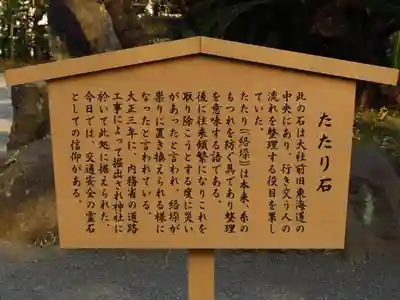 たたり石
此の石は大社前旧東海道の
中央にあり、行き交う人の
流れを整理する役目を果し
ていた。
たたり(絡垜)は本来、糸の
もつれを防ぐ具であり整理
を意味する語である。
後に往来頻繁になりこれを
取り除こうとする度に災い
があったと言われ、絡垜が
祟りに置き換えられる様に
なったと言われている。
大正三年に、内務省の道路
工事によって掘出され神社に
於いて此処に据えられた。
今日では、交通安全の霊石
としての信仰がある。